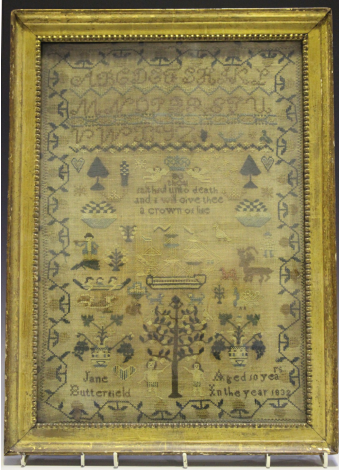 A B C D E F G H I K L
M N O P Q R S T U
V W X Y Z
Be
thou
faithful unto death
and i will give thee
a crown of life
Jane
Butterfield
Aged 10 yea rs
In the year 1832